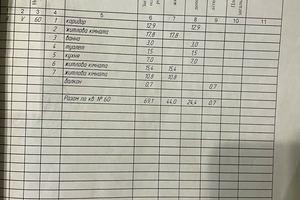 2 3 4 5 6 7 8 9 10 11
V 60 1 коридор 12.9 12.9
2 житлова кімната 17.8 17.8
3 ванна 3.0 3.0
4 туалет 1.5 1.5
5 кухня 7.0 7.0
6 житлова кімната 15.4 15.4
7 житлова кімната 10.8 10.8
балкон 0.7 0.7
Разом по кв. № 60 69.1 44.0 24.4 0.7